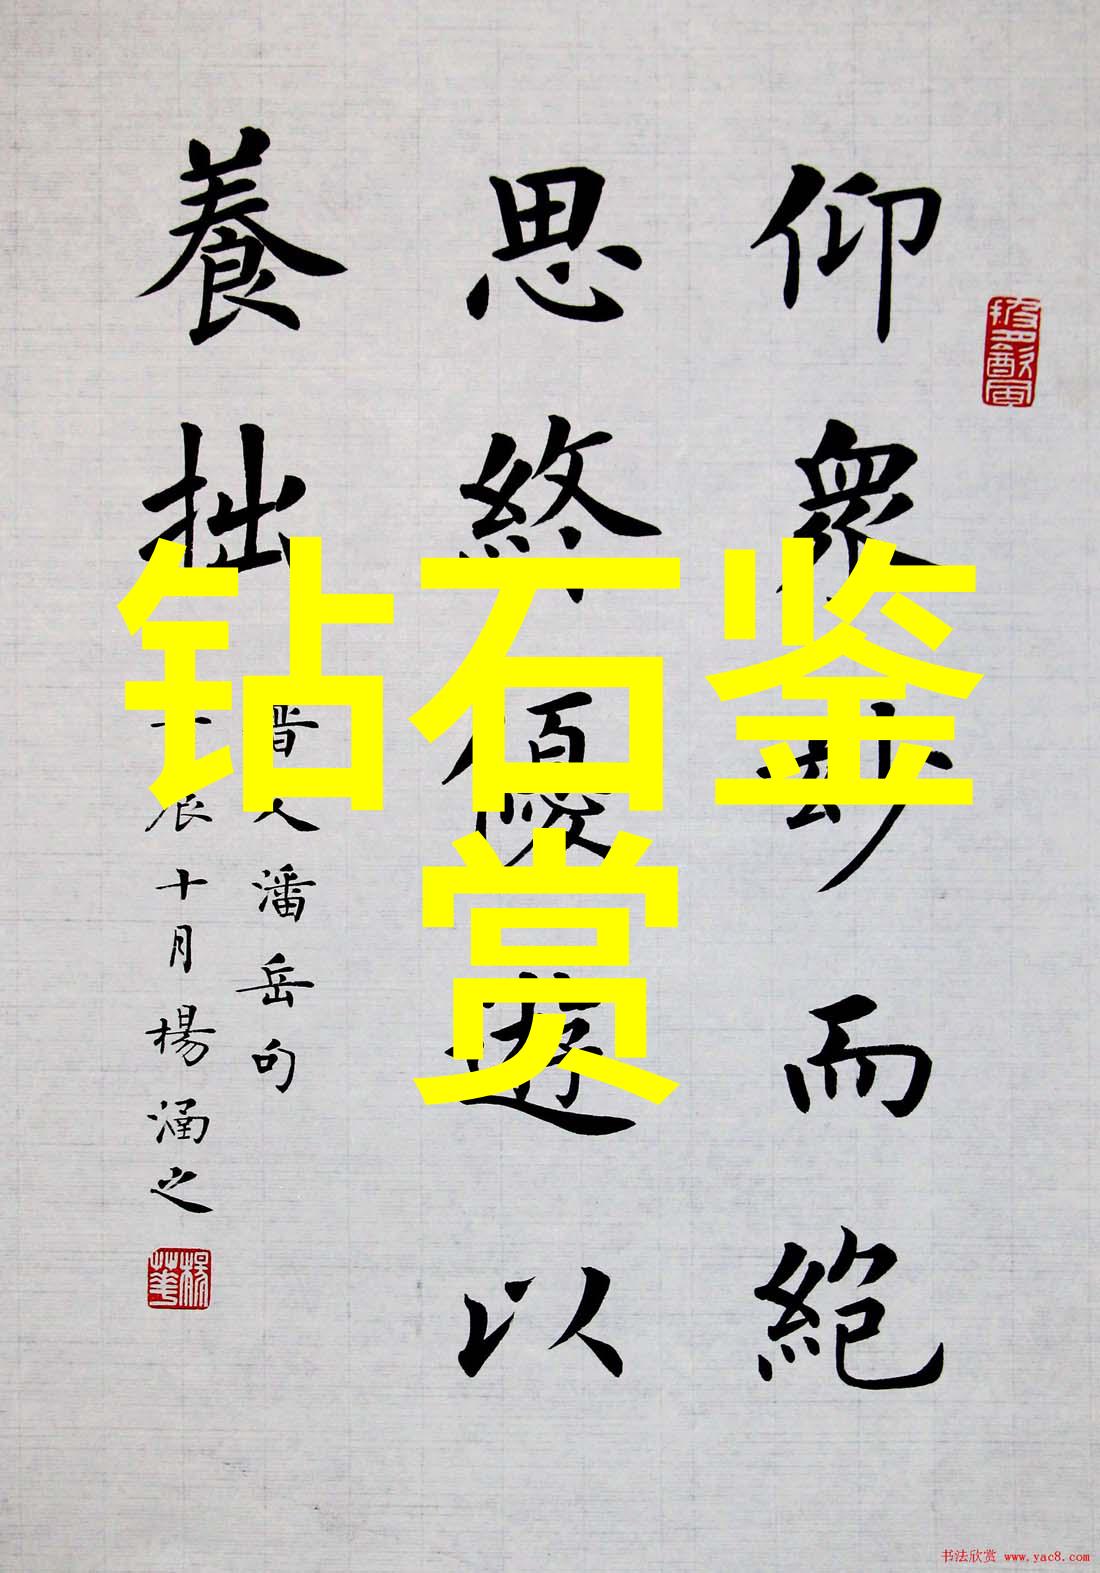 仰眾玅而絕
思終優遊以
養拙
晉人潘岳句
辰十月楊涵之
钻石鉴
赏
书法欣赏 www.yac8.com